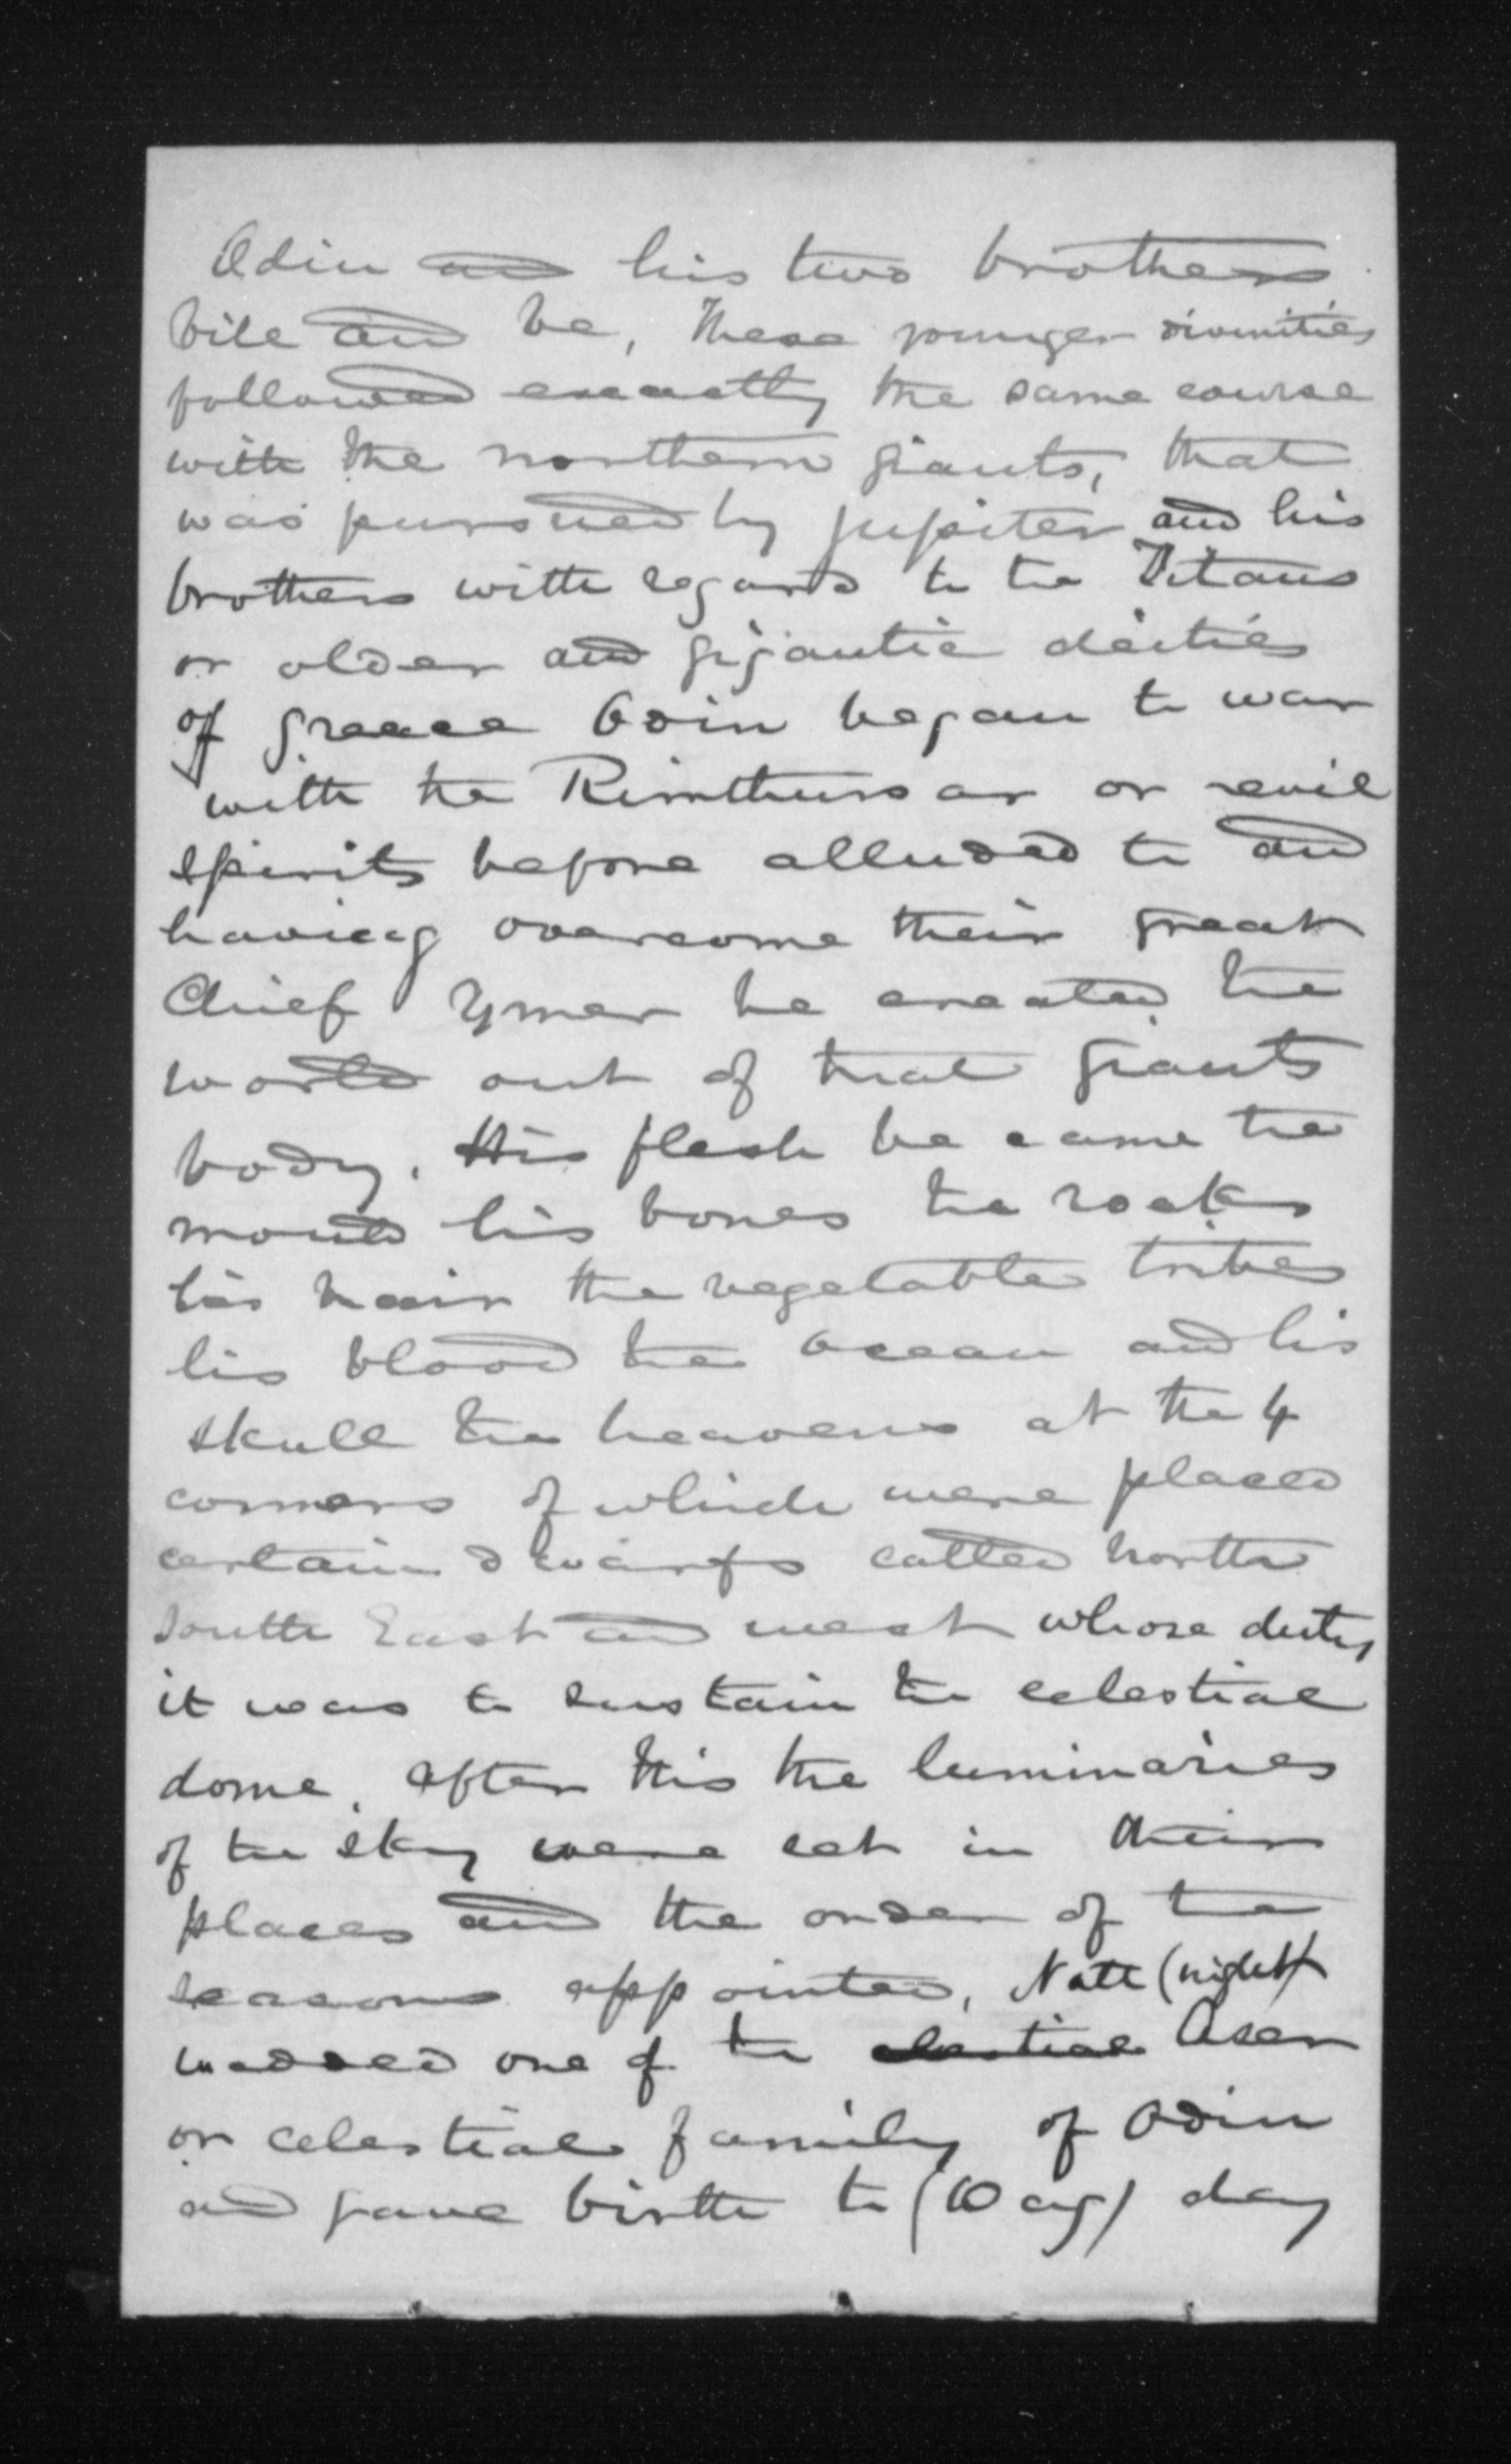 Odin and his two brothers
Vile and Ve, These younger divinities
followed exactly the same course
with the northern giants, that
was pursued by Jupiter and his
brothers with regard to the Titans
or older and gigantic deities
of Greece Odin began to war
with the Rimthursar or evil
spirits before alluded to and
having overcome their great
Chief Ymer he created the
world out of that giants
body. His flesh be came the
mould his bones the rocks
his hair the vegetable tribes
his blood the Ocean and his
skull the heavens at the 4
corners of which were placed
certain dwarfs called North
South East and west whose duty
it was to sustain the celestial
dome. After this the luminaries
of the sky were set in their
places and the order of the
seasons appointed, Natt (night)
wedded one of the celestial Aser
or celestial family of Odin
and gave birth to (Dag) day